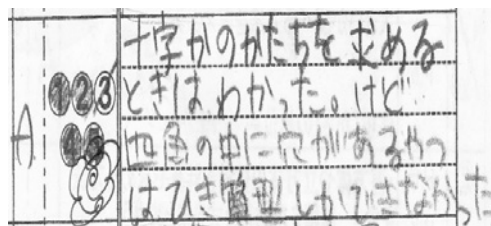 A
①②③
④⑤
十字かのかたちを求める
ときはわかった。けど
四角の中に穴があるやつ
はひき算型しかできなかった